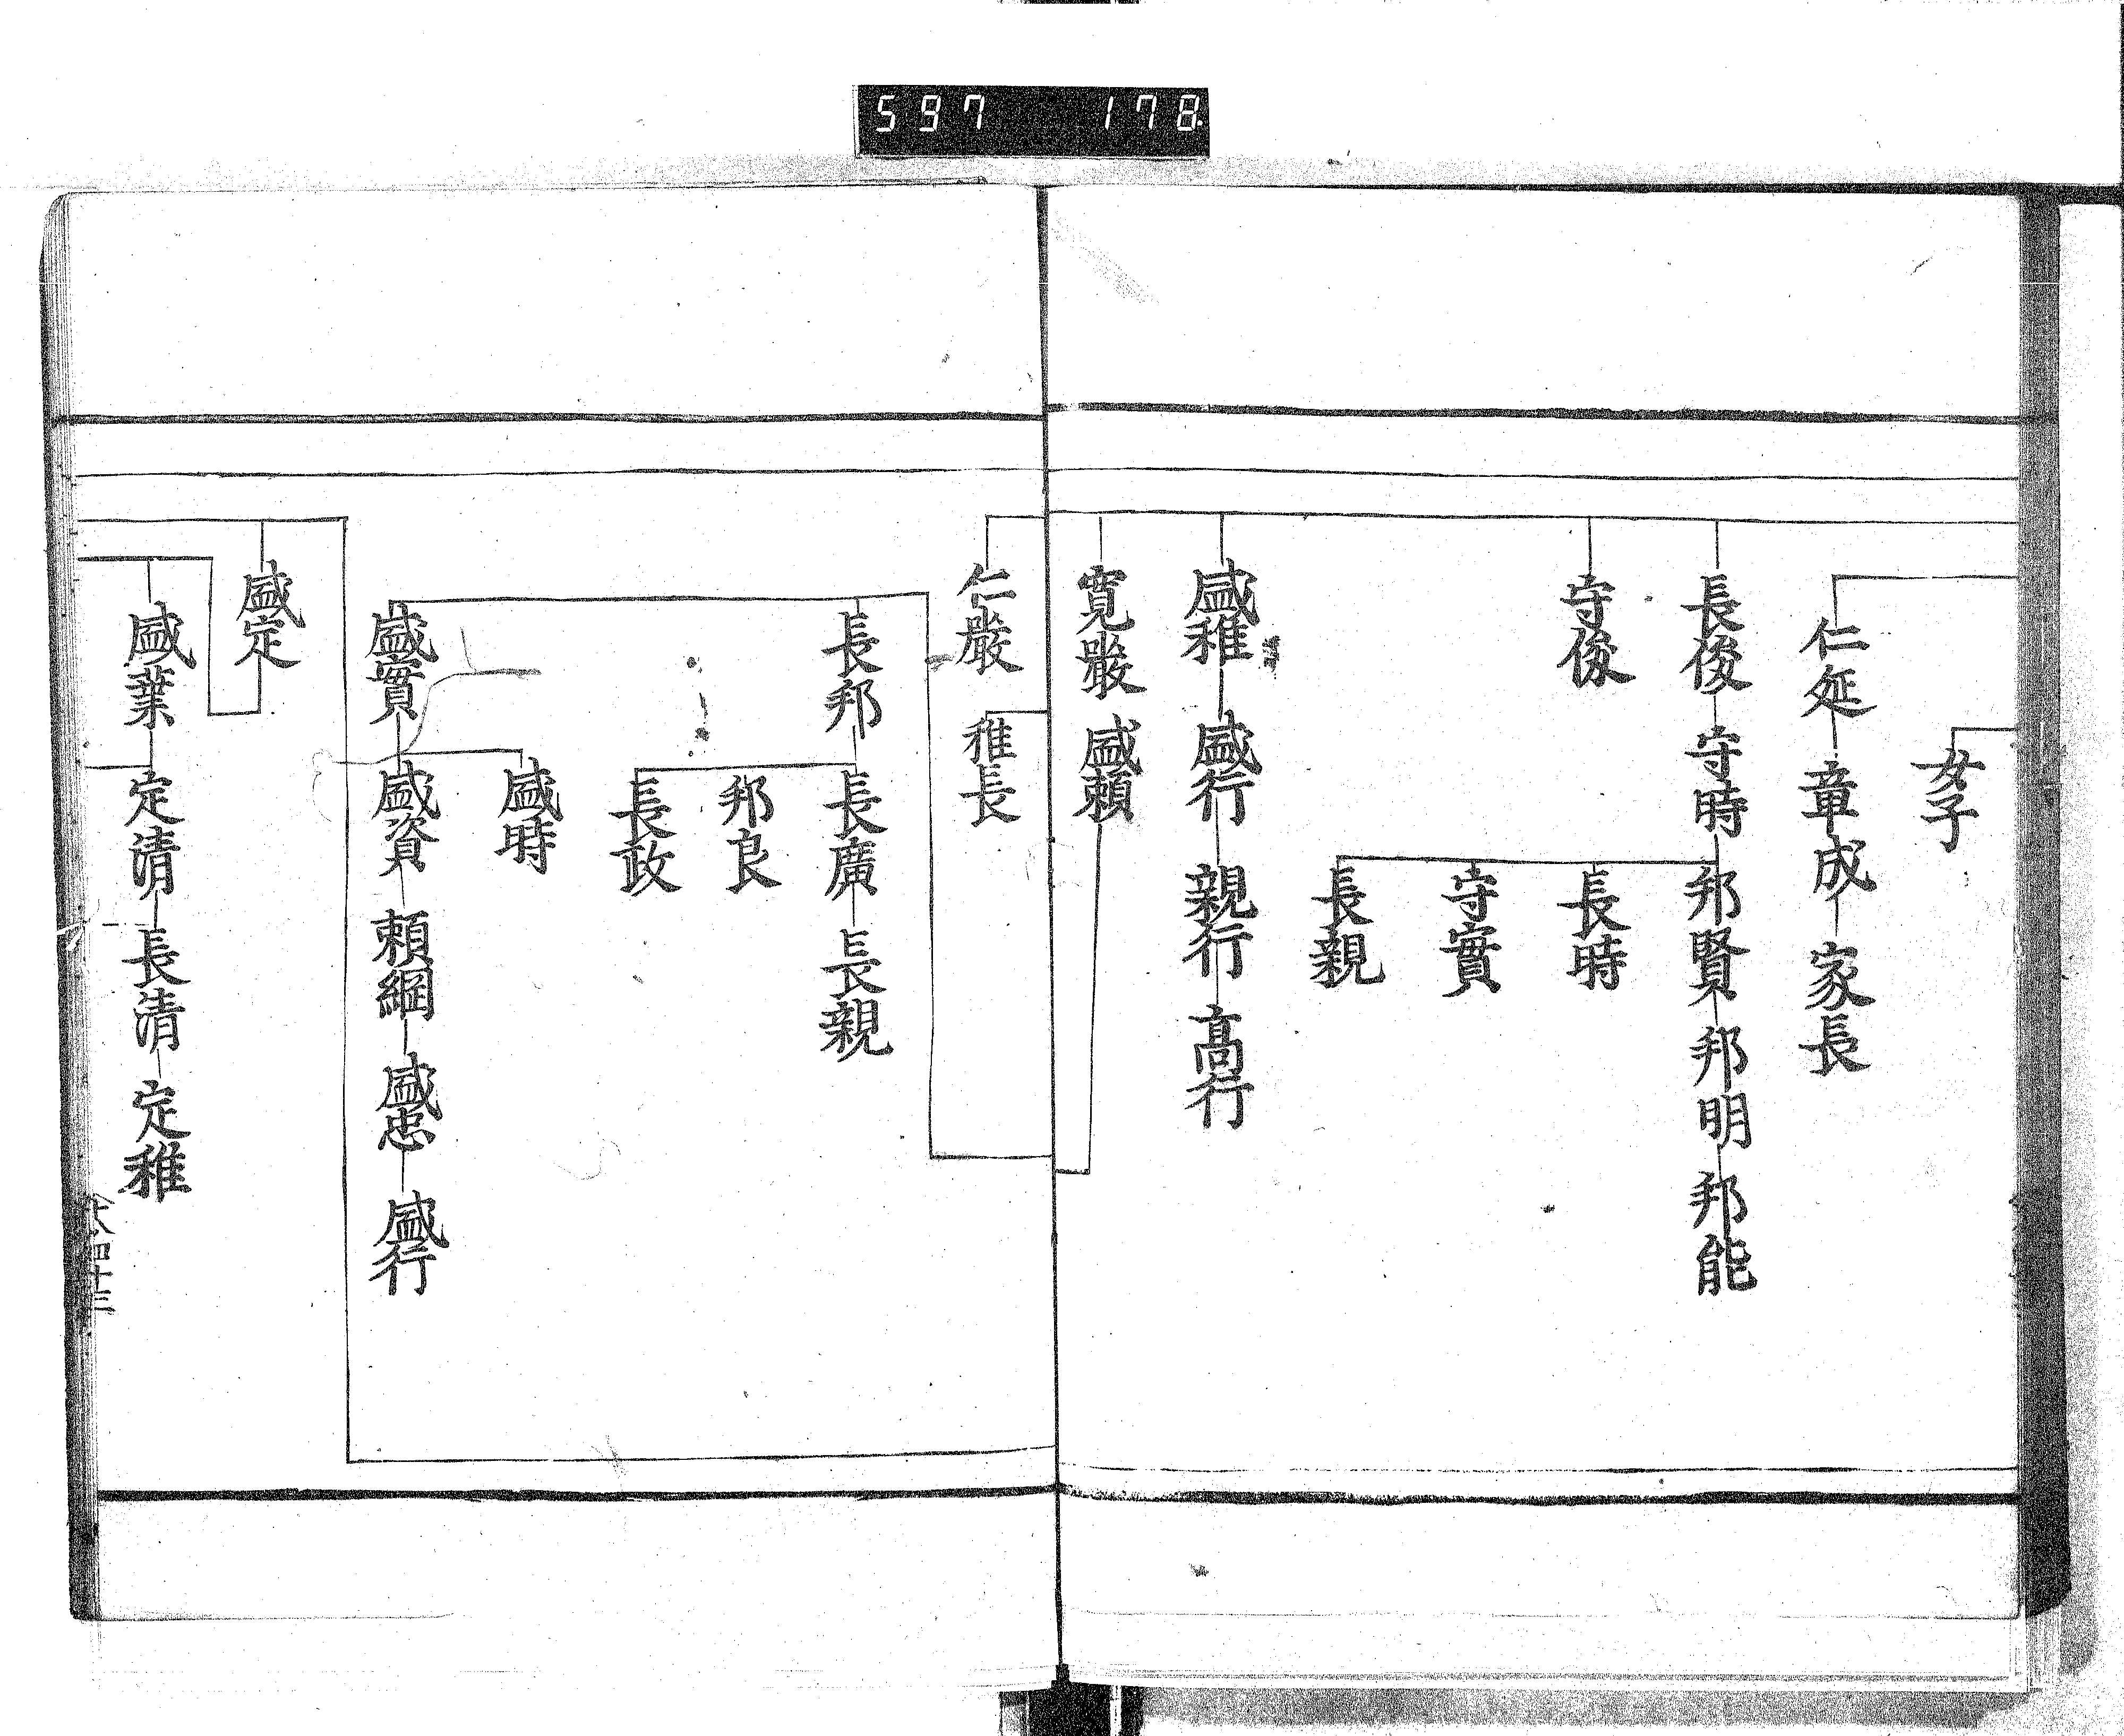 597 178
女子
仁延 章成 家長
長俊 守時 邦賢 邦明 邦能
守俊 長時
守實
長親
盛稚 盛行 親行 高行
寛嚴 盛頼
仁嚴 稚長
長邦 長廣 長親
邦良
長政
盛時
盛實 盛資 頼綱 盛忠 盛行
盛定
盛業 定清 長清 定稚
四十三